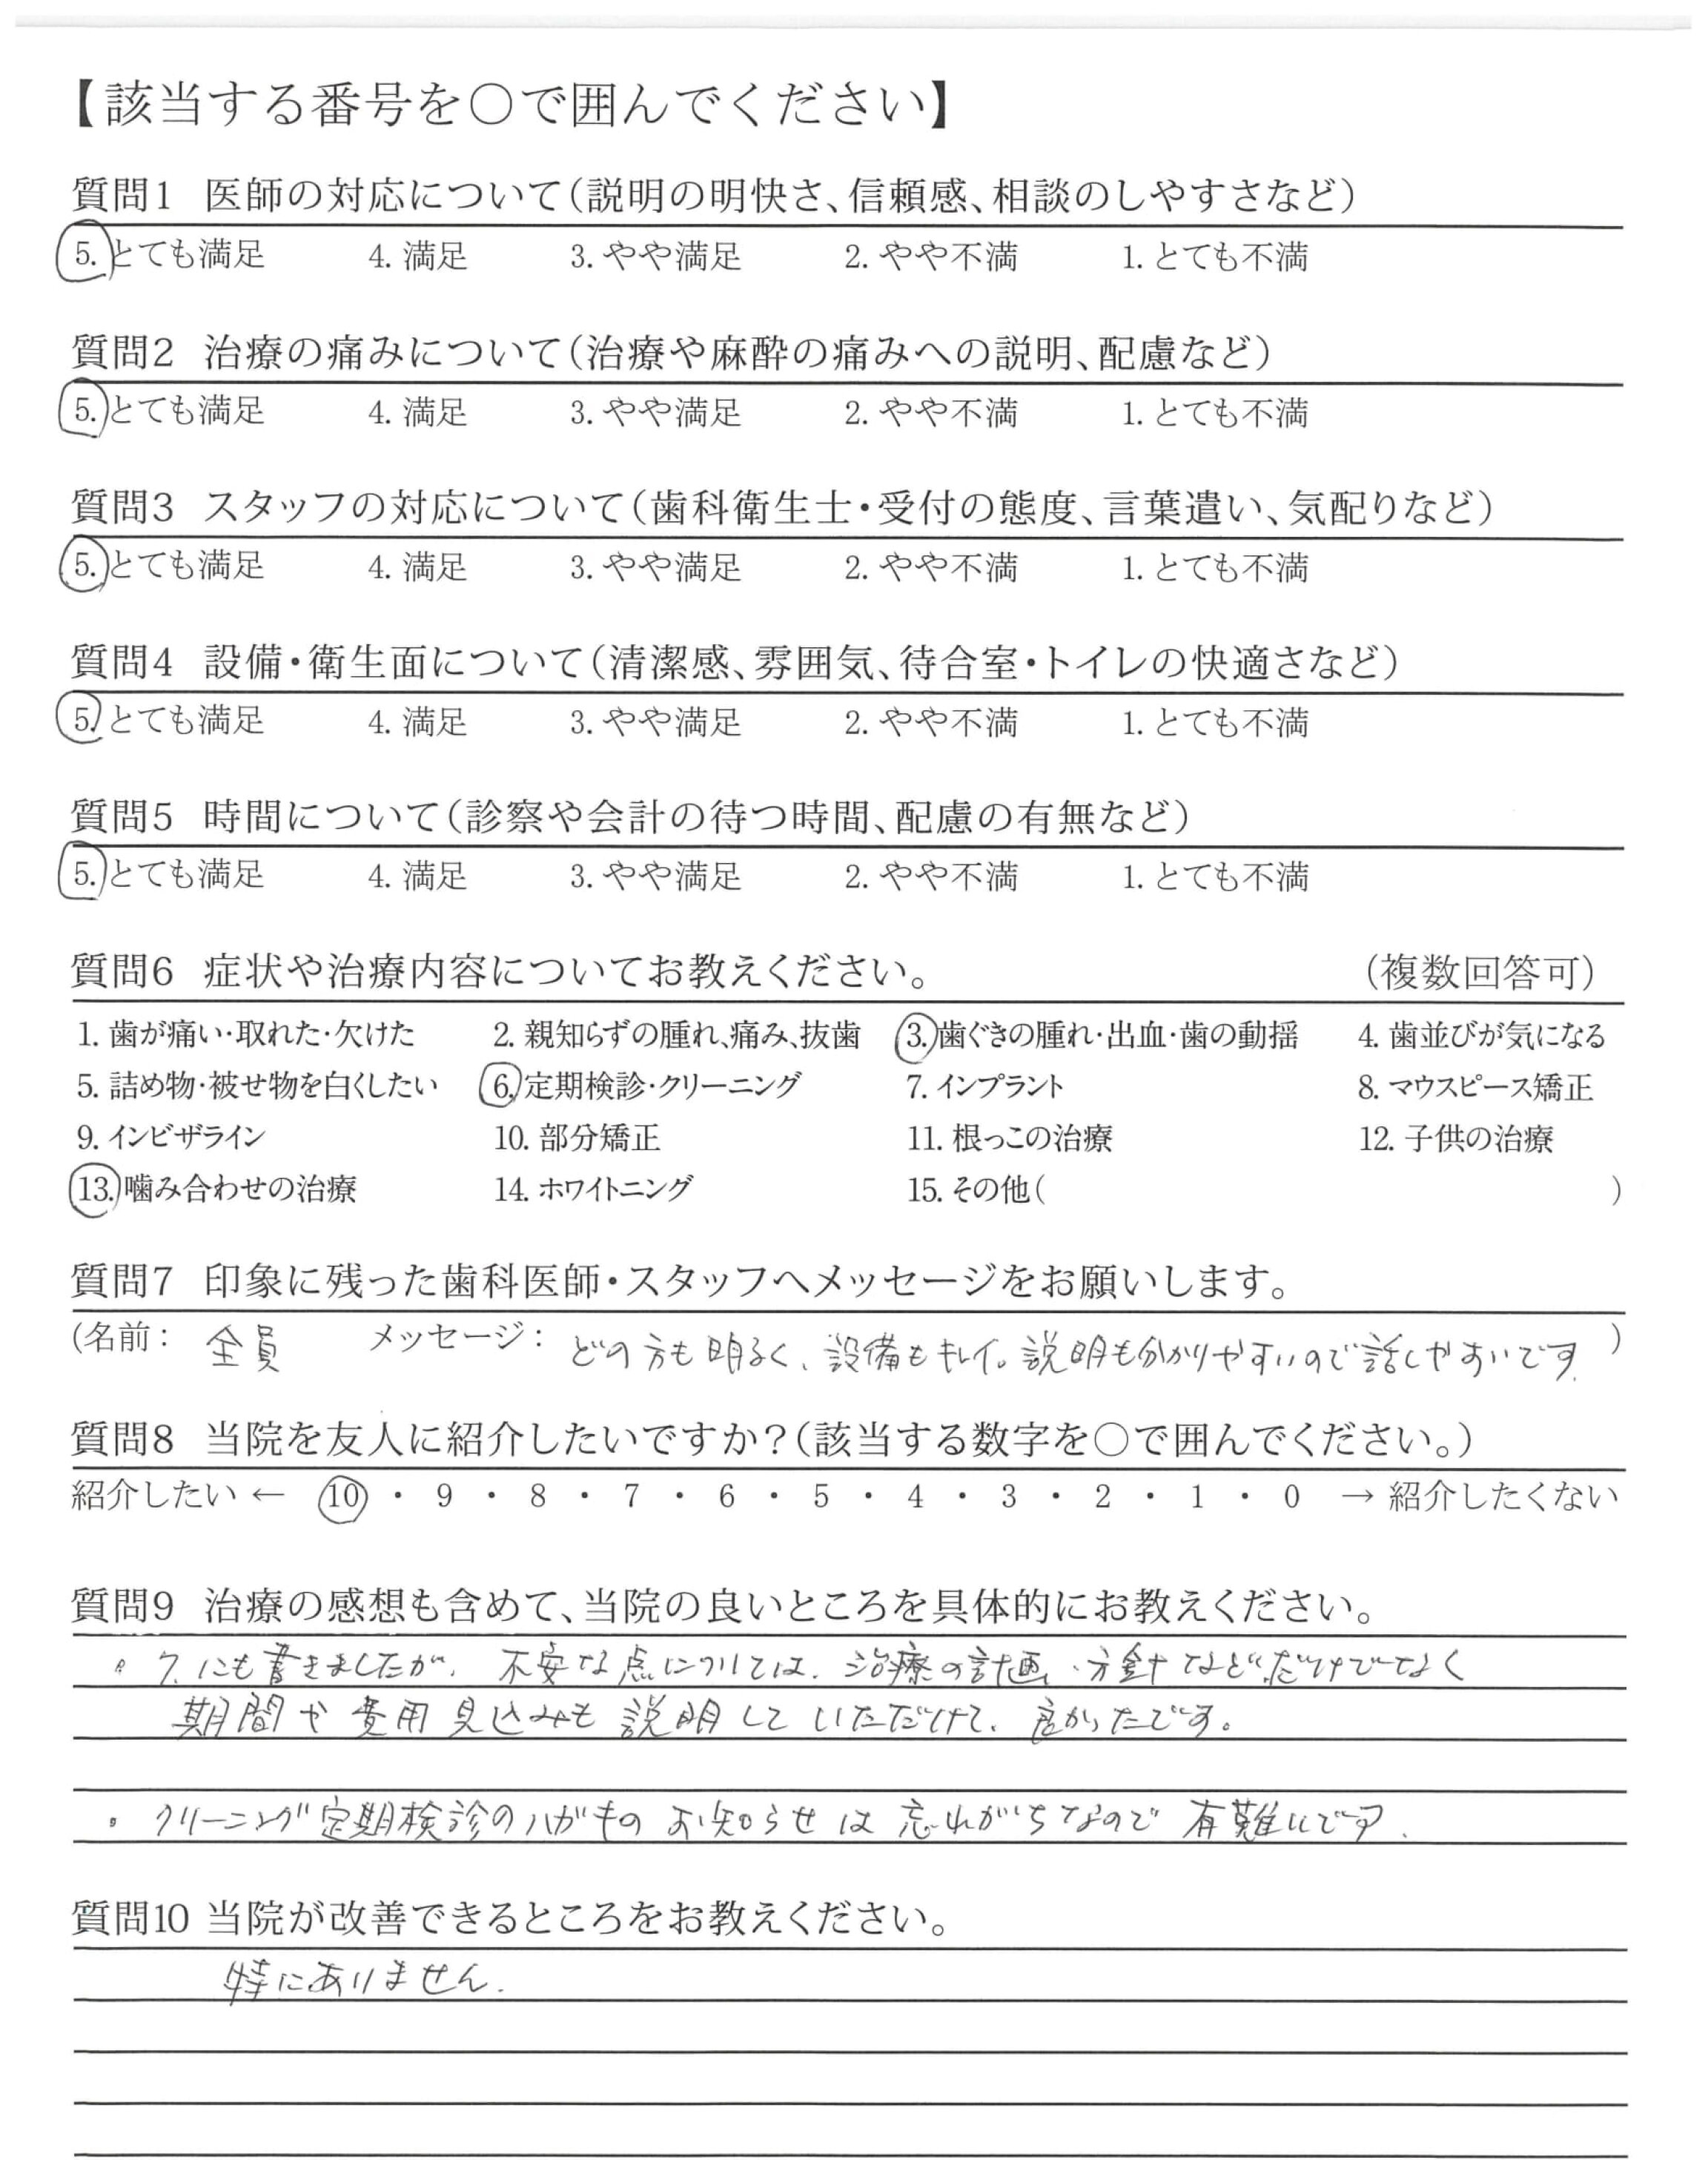 【該当する番号を○で囲んでください】
質問1 医師の対応について(説明の明快さ、信頼感、相談のしやすさなど)
5. とても満足 4. 満足 3. やや満足 2. やや不満 1. とても不満
質問2 治療の痛みについて(治療や麻酔の痛みへの説明、配慮など)
5. とても満足 4. 満足 3. やや満足 2. やや不満 1. とても不満
質問3 スタッフの対応について(歯科衛生士・受付の態度、言葉遣い、気配りなど)
5. とても満足 4. 満足 3. やや満足 2. やや不満 1. とても不満
質問4 設備・衛生面について(清潔感、雰囲気、待合室・トイレの快適さなど)
5. とても満足 4. 満足 3. やや満足 2. やや不満 1. とても不満
質問5 時間について(診察や会計の待つ時間、配慮の有無など)
5. とても満足 4. 満足 3. やや満足 2. やや不満 1. とても不満
質問6 症状や治療内容についてお教えください。 (複数回答可)
1. 歯が痛い・取れた・欠けた 2. 親知らずの腫れ、痛み、抜歯 3. 歯ぐきの腫れ・出血・歯の動揺 4. 歯並びが気になる
5. 詰め物・被せ物を白くしたい 6. 定期検診・クリーニング 7. インプラント 8. マウスピース矯正
9. インビザライン 10. 部分矯正 11. 根っこの治療 12. 子供の治療
13. 噛み合わせの治療 14. ホワイトニング 15. その他( )
質問7 印象に残った歯科医師・スタッフへメッセージをお願いします。
(名前: 全員 メッセージ: どの方も明るく、設備もキレイ。説明も分かりやすいので話しやすいです。)
質問8 当院を友人に紹介したいですか?(該当する数字を○で囲んでください。)
紹介したい ← 10 ・ 9 ・ 8 ・ 7 ・ 6 ・ 5 ・ 4 ・ 3 ・ 2 ・ 1 ・ 0 → 紹介したくない
質問9 治療の感想も含めて、当院の良いところを具体的にお教えください。
・7.にも書きましたが、不安な点については、治療の計画、方針などだけでなく
期間や費用見込みも説明していただけて、良かったです。
・クリーニング定期検診のハガキのお知らせは忘れがちなので有難いです。
質問10 当院が改善できるところをお教えください。
特にありません。